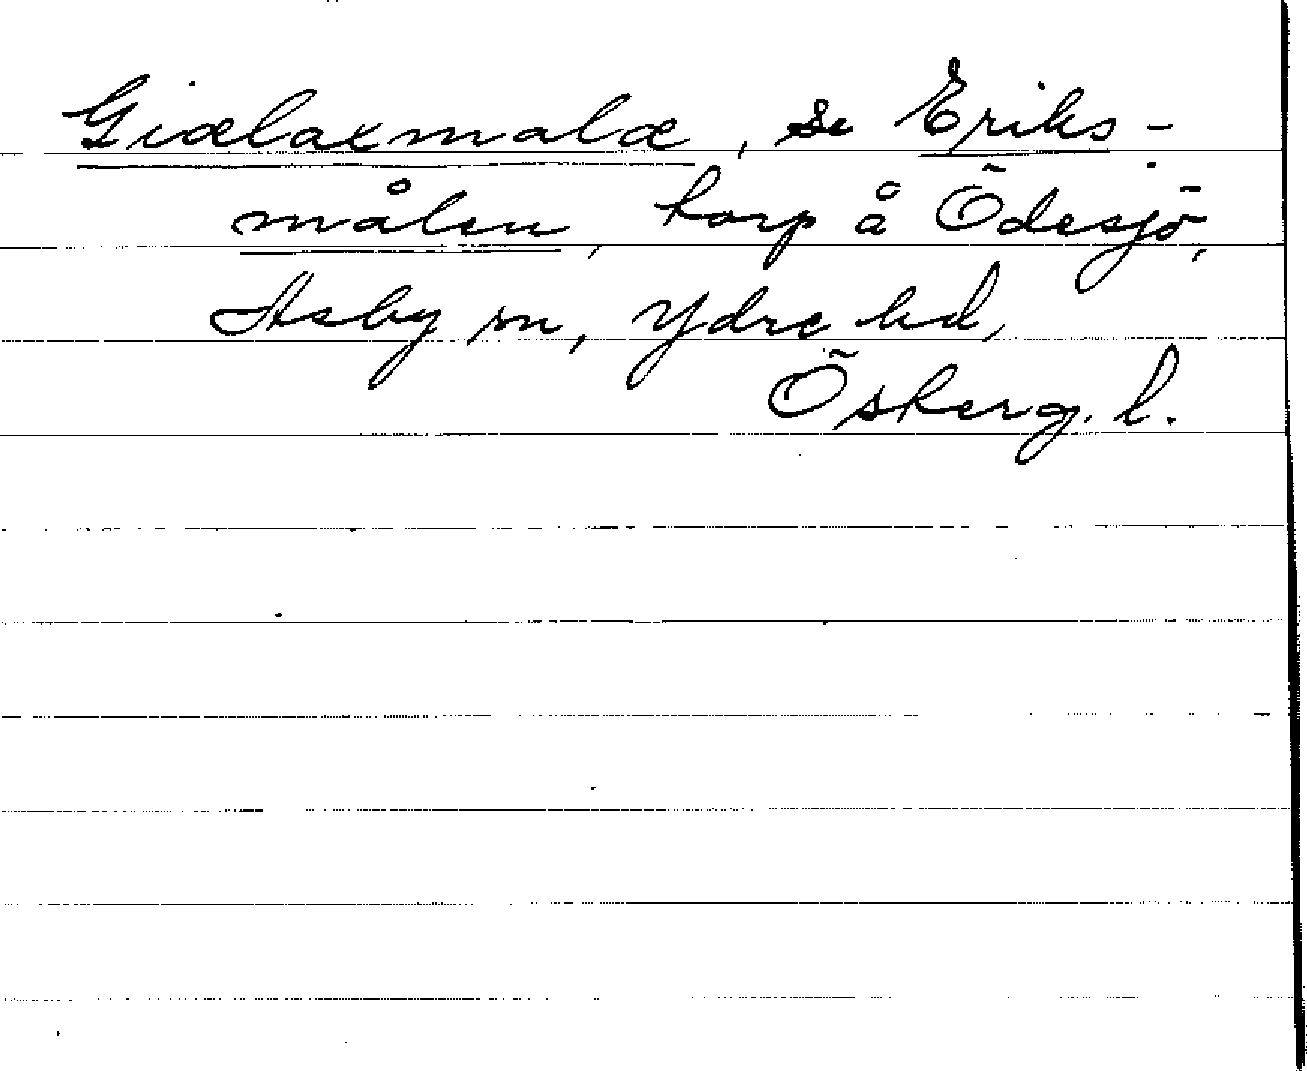 Giælaxmalæ, se Eriks-
målen, torp å Ödesjö,
Asby sn, Ydre hd,
Östergn. l.